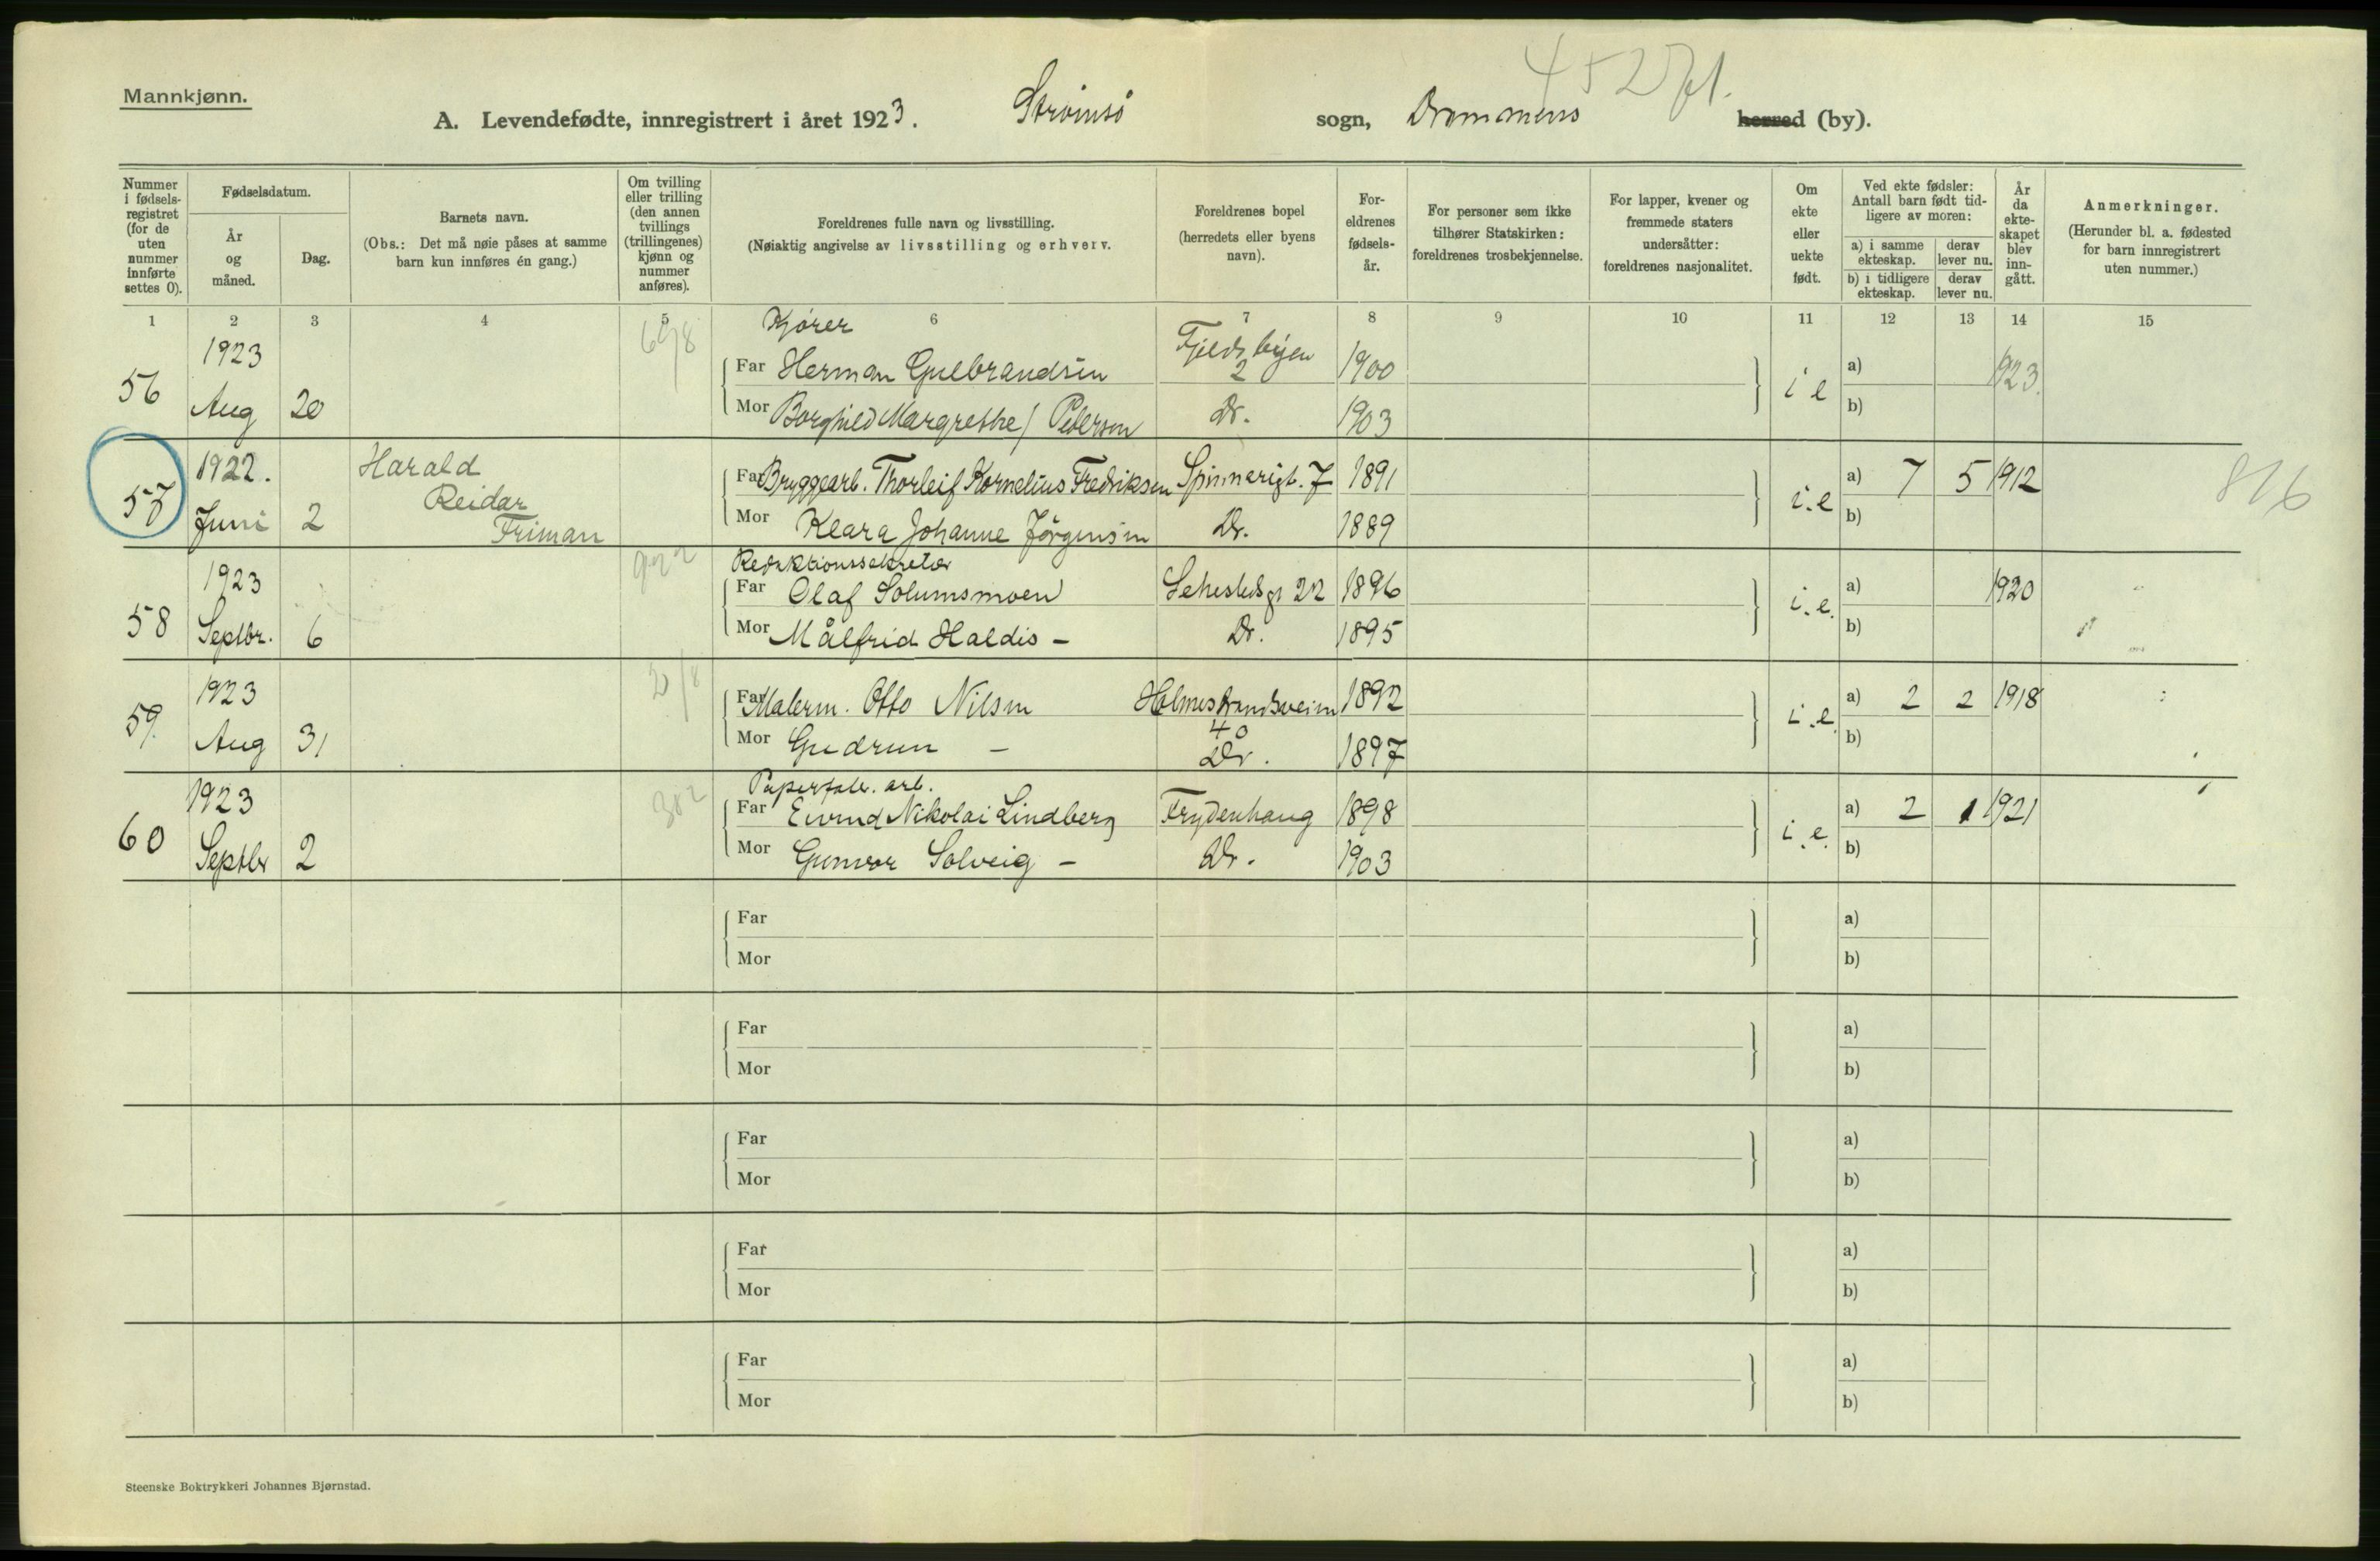 Mannkjønn.
A. Levendefødte, innregistrert i året 1923. Strømsø sogn, Drammens herred (by).
Nummer i fødsels-registret (for de uten nummer innførte settes 0).
Fødselsdatum.
År og måned.
Dag.
Barnets navn.
(Obs.: Det må nøie påses at samme barn kun innføres én gang.)
Om tvilling eller trilling (den annen tvillings (trillingenes) kjønn og nummer anføres).
Foreldrenes fulle navn og livsstilling.
(Nøiaktig angivelse av livsstilling og erhverv.
Foreldrenes bopel (herredets eller byens navn).
For-eldrenes fødsels-år.
For personer som ikke tilhører Statskirken: foreldrenes trosbekjennelse.
For lapper, kvener og fremmede staters undersåtter: foreldrenes nasjonalitet.
Om ekte eller uekte født.
Ved ekte fødsler: Antall barn født tid-ligere av moren:
a) i samme ekteskap. derav lever nu.
b) i tidligere ekteskap. derav lever nu.
År da ekte-skapet blev inn-gått.
Anmerkninger.
(Herunder bl. a. fødested for barn innregistrert uten nummer.)
1 2 3 4 5 6 7 8 9 10 11 12 13 14 15
Kjører
56 1923 Aug 20 Far Herman Gulbrandsen Fjeldsbyen 2 1900 i e a) 1923
Mor Borghild Margrethe / Pedersen Dr. 1903 b)
57 1922. Juni 2 Harald Reidar Friman Far Bryggearb. Thorleif Kornelius Fredriksen Spinnerigt. 7 1891 i.e a) 7 5 1912 816
Mor Klara Johanne Jörgensen Dr. 1889 b)
Redaktionssekretær
58 1923 Septbr. 6 Far Olaf Solumsmoen Sehestedsgt 22 1896 i.e. a) 1920
Mor Målfrid Haldis - Dr. 1895 b)
59. 1923 Aug 31 Far Malerm. Otto Nilsen Holmestrandsveien 40 1892 i.e. a) 2 2 1918
Mor Gudrun - Dr. 1897 b)
Papirfabr. arb.
60 1923 Septbr 2 Far Eivind Nikolai Lindberg Frydenhaug 1898 i.e. a) 2 1 1921
Mor Gunvor Solveig - Dr. 1903 b)
Far a)
Mor b)
Far a)
Mor b)
Far a)
Mor b)
Far a)
Mor b)
Far a)
Mor b)
Steenske Boktrykkeri Johannes Bjørnstad.